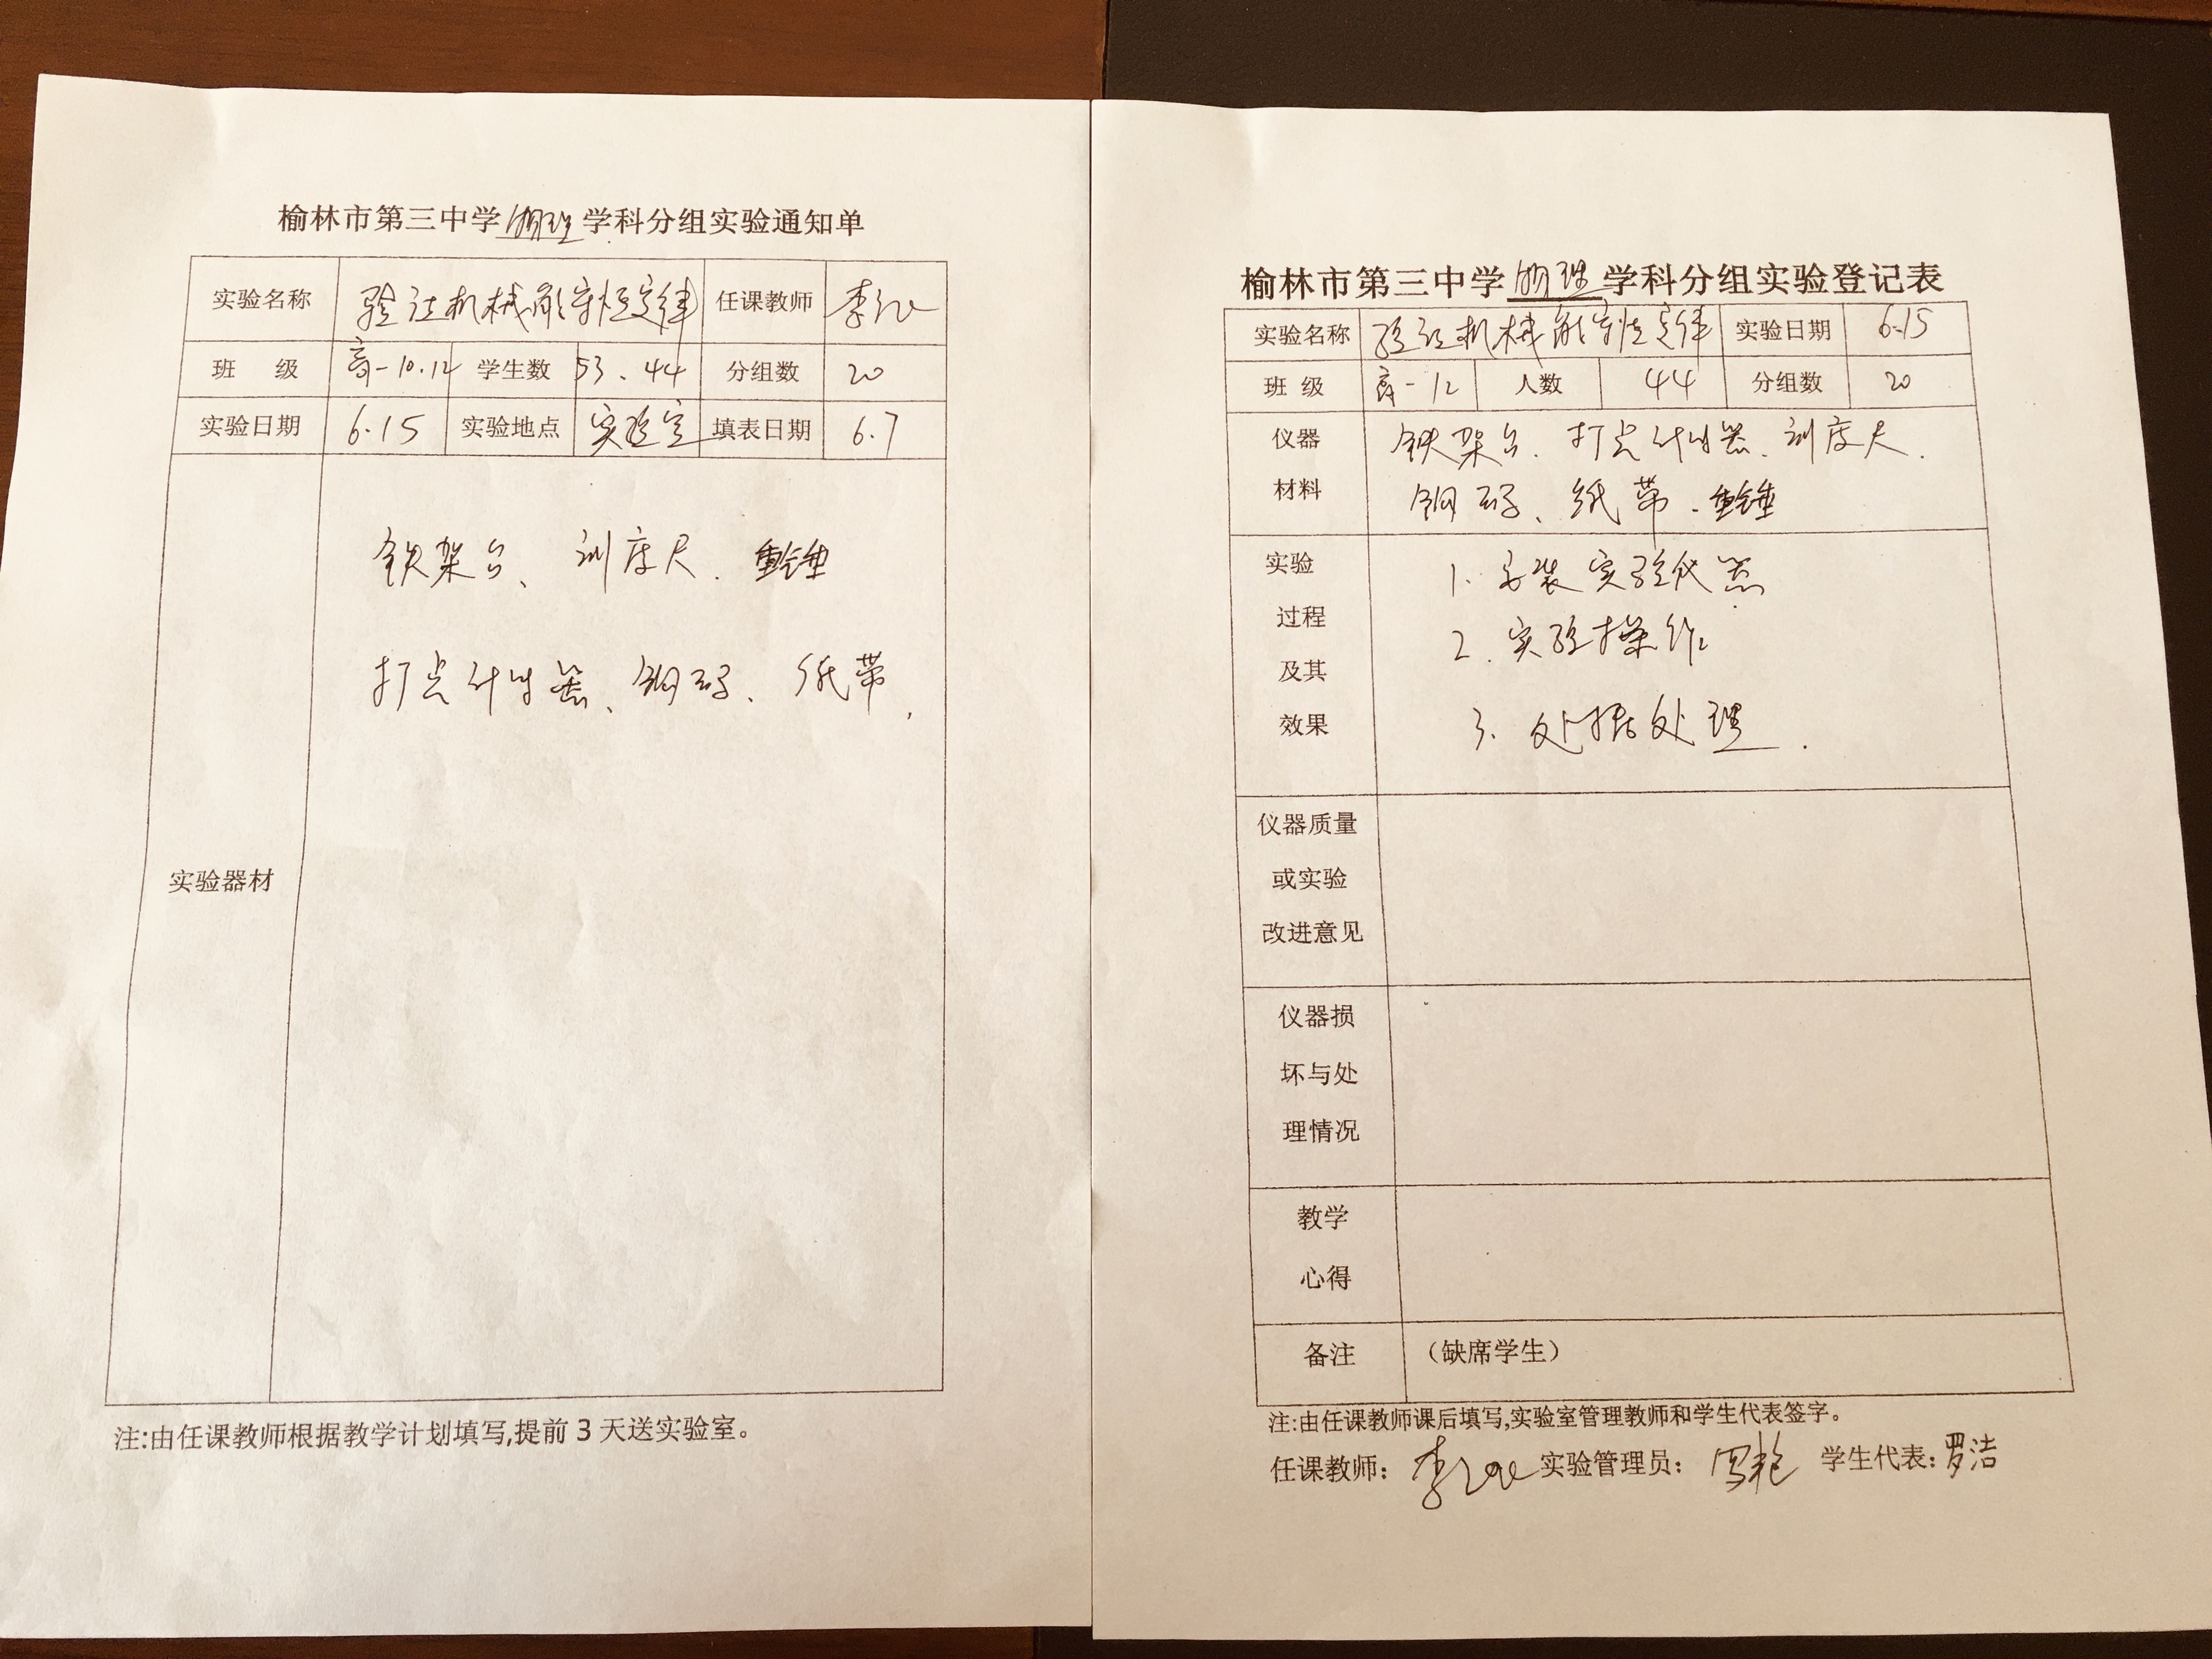 榆林市第三中学物理学科分组实验通知单
实验名称 验证机械能守恒定律 任课教师 李
班 级 高一10.12 学生数 53、44 分组数 20
实验日期 6.15 实验地点 实验室 填表日期 6.7
实验器材
铁架台、刻度尺、重锤
打点计时器、钩码、纸带,
注:由任课教师根据教学计划填写,提前 3 天送实验室。
榆林市第三中学物理学科分组实验登记表
实验名称 验证机械能守恒定律 实验日期 6.15
班 级 高一12 人数 44 分组数 20
仪器
材料
铁架台、打点计时器、刻度尺、
钩码、纸带、重锤
实验
过程
及其
效果
1. 安装实验仪器
2. 实验操作
3. 处据处理.
仪器质量
或实验
改进意见
仪器损
坏与处
理情况
教学
心得
备注 （缺席学生）
注:由任课教师课后填写,实验室管理教师和学生代表签字。
任课教师: 李 实验管理员: 学生代表: 罗洁